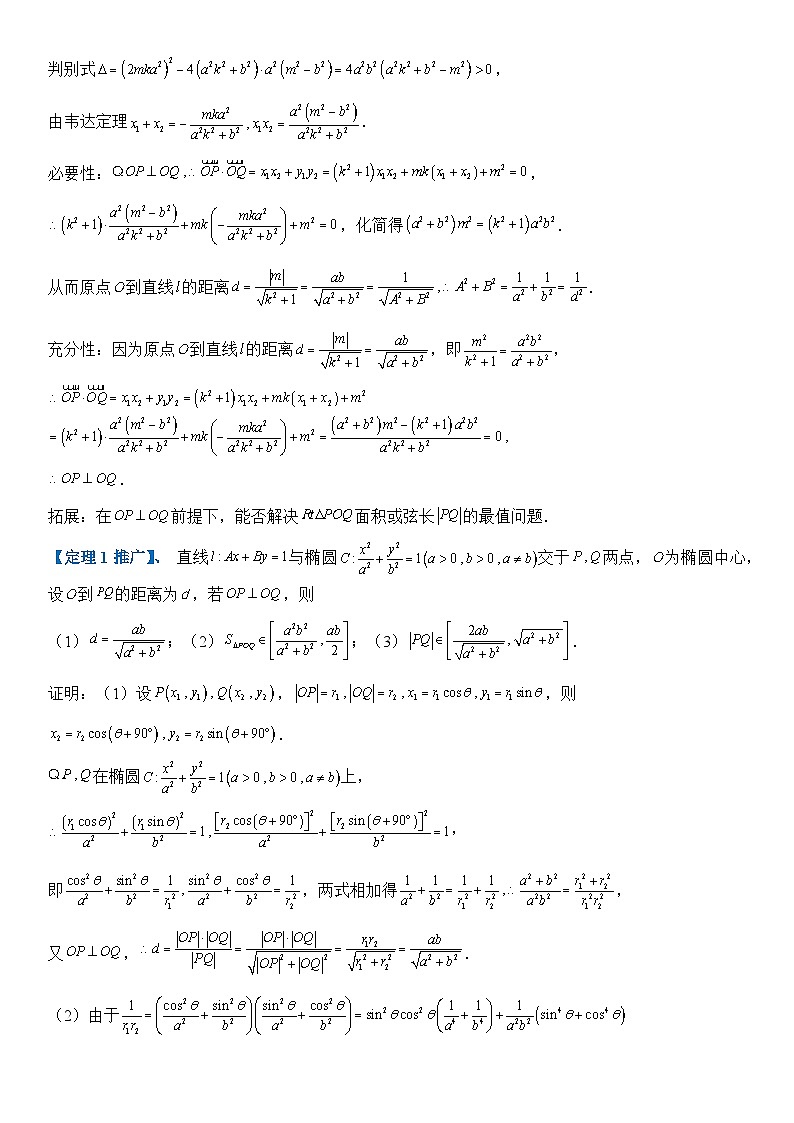 判别式Δ=(2mka²)²−4(a²k²+b²)·a²(m²−b²)=4a²b²(a²k²+b²−m²)>0,
由韦达定理x₁+x₂=−mka²/(a²k²+b²), x₁x₂=a²(m²−b²)/(a²k²+b²).
必要性：Q OP⊥OQ,∴ OP·OQ=x₁x₂+y₁y₂=(k²+1)x₁x₂+mk(x₁+x₂)+m²=0,
∴(k²+1)·a²(m²−b²)/(a²k²+b²)+mk(−mka²/(a²k²+b²))+m²=0，化简得(a²+b²)m²=(k²+1)a²b².
从而原点O到直线l的距离d=|m|/√(k²+1)=ab/√(a²+b²)=1/√(A²+B²),∴ A²+B²=1/a²+1/b²=1/d².
充分性：因为原点O到直线l的距离d=|m|/√(k²+1)=ab/√(a²+b²)，即m²/(k²+1)=a²b²/(a²+b²),
∴OP·OQ=x₁x₂+y₁y₂=(k²+1)x₁x₂+mk(x₁+x₂)+m²
=(k²+1)·a²(m²−b²)/(a²k²+b²)+mk(−mka²/(a²k²+b²))+m²=((a²+b²)m²−(k²+1)a²b²)/(a²k²+b²)=0,
∴OP⊥OQ.
拓展：在OP⊥OQ前提下，能否解决RtΔPOQ面积或弦长|PQ|的最值问题.
【定理1推广】、直线l:Ax+By=1与椭圆C:x²/a²+y²/b²=1(a>0,b>0,a≠b)交于P,Q两点，O为椭圆中心，
设O到PQ的距离为d，若OP⊥OQ，则
（1）d=ab/√(a²+b²)；（2）S_ΔPOQ∈[a²b²/(a²+b²),ab/2]；（3）|PQ|∈[2ab/√(a²+b²),√(a²+b²)].
证明：（1）设P(x₁,y₁),Q(x₂,y₂)，|OP|=r₁,|OQ|=r₂,x₁=r₁cosθ,y₁=r₁sinθ，则
x₂=r₂cos(θ+90°),y₂=r₂sin(θ+90°).
Q P,Q在椭圆C:x²/a²+y²/b²=1(a>0,b>0,a≠b)上，
∴(r₁cosθ)²/a²+(r₁sinθ)²/b²=1,[r₂cos(θ+90°)]²/a²+[r₂sin(θ+90°)]²/b²=1,
即cos²θ/a²+sin²θ/b²=1/r₁²,sin²θ/a²+cos²θ/b²=1/r₂²，两式相加得1/a²+1/b²=1/r₁²+1/r₂²,∴(a²+b²)/(a²b²)=(r₁²+r₂²)/(r₁²r₂²),
又OP⊥OQ，∴d=|OP|·|OQ|/|PQ|=|OP|·|OQ|/√(|OP|²+|OQ|²)=r₁r₂/√(r₁²+r₂²)=ab/√(a²+b²).
（2）由于1/(r₁r₂)=(cos²θ/a²+sin²θ/b²)(sin²θ/a²+cos²θ/b²)=sin²θcos²θ(1/a⁴+1/b⁴)+1/(a²b²)(sin⁴θ+cos⁴θ)